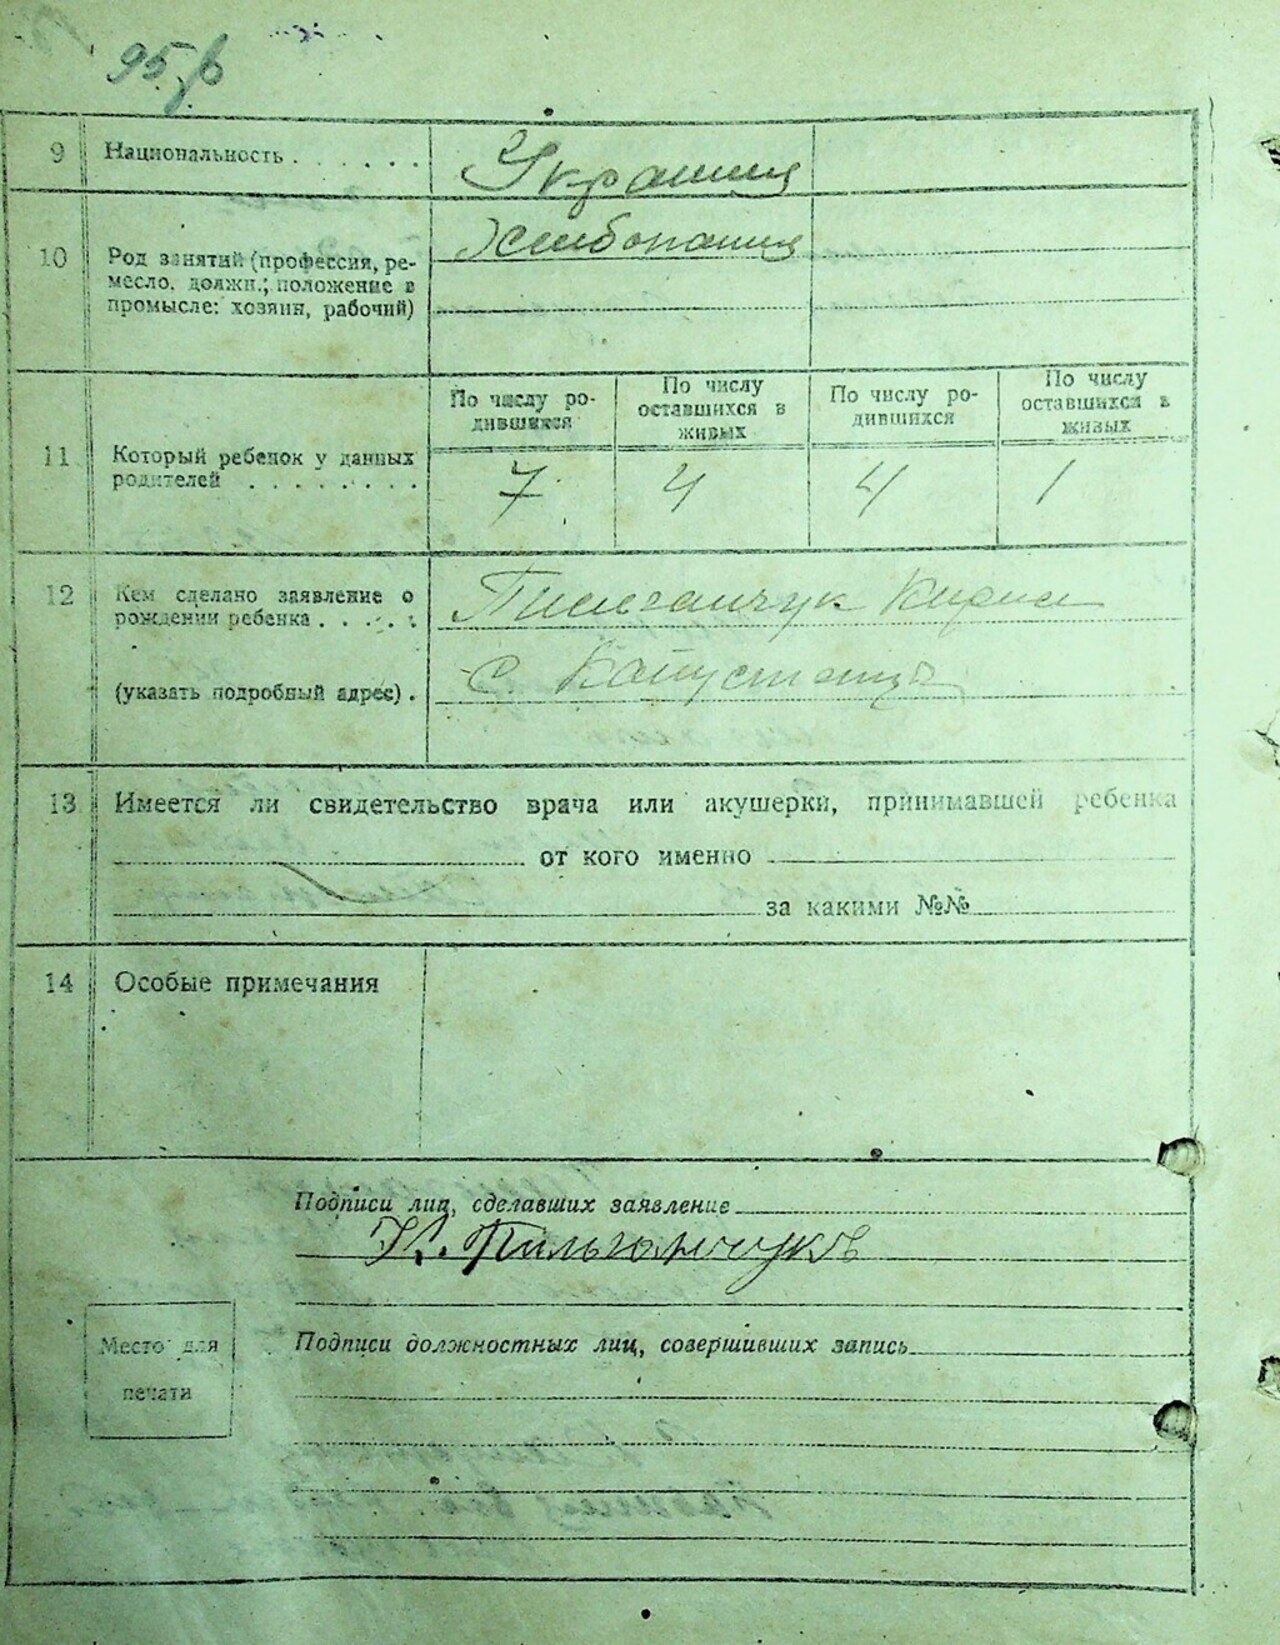 95
9 Национальность . . . . . . Украинц
10 Род занятий (профессия, ре-
месло. должн.; положение в
промысле: хозяин, рабочий)
Хлибопашец
11 Который ребенок у данных
родителей . . . . . . . .
По числу ро-
дившихся
По числу
оставшихся в
живых
По числу ро-
дившихся
По числу
оставшихся в
живых
7 4 4 1
12 Кем сделано заявление о
рождении ребенка . . . . .
(указать подробный адрес) .
Пилганчук
с. Капустинцы
13 Имеется ли свидетельство врача или акушерки, принимавшей ребенка
от кого именно
за какими №№
14 Особые примечания
Подписи лиц, сделавших заявление
К. Пильганчуков
Место для
печати
Подписи должностных лиц, совершивших запись